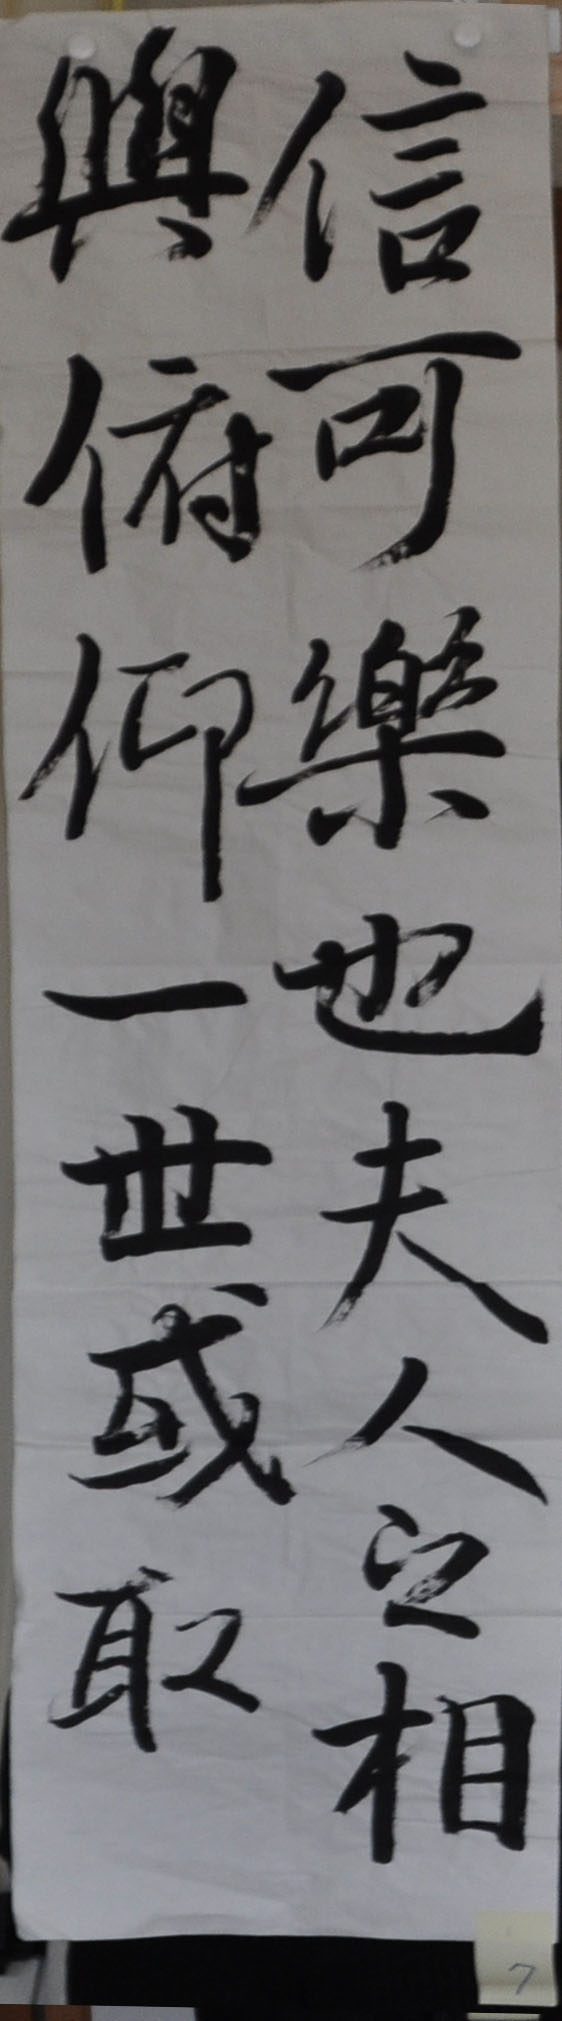 信可樂也夫人之相
與俯仰一世或取
7